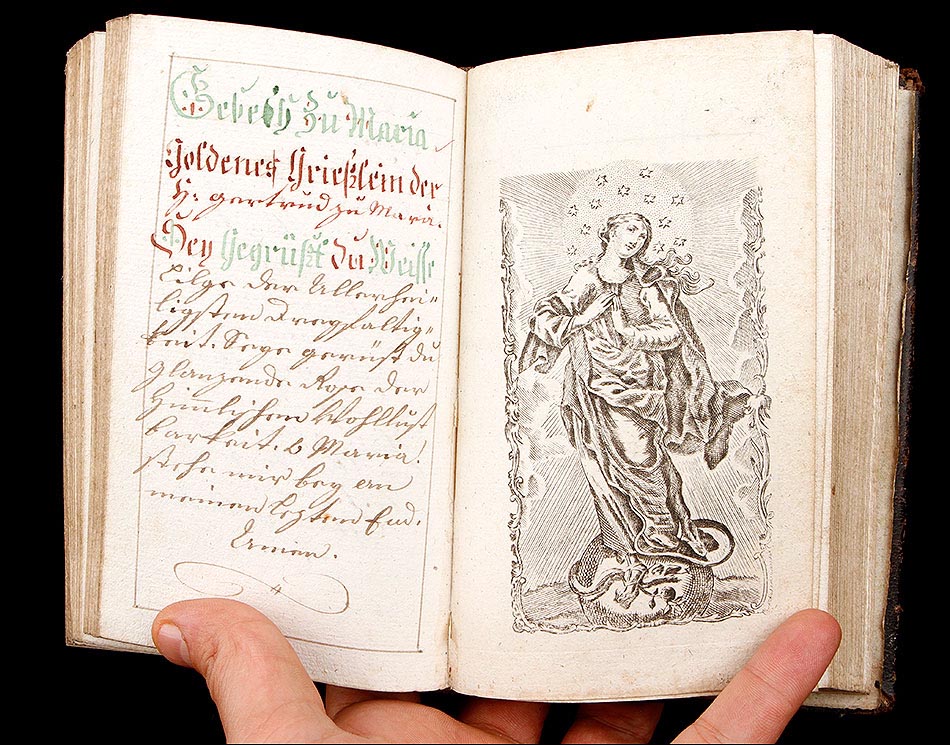 Gebeth Zu Maria
Goldenes Grießlein der
H: gertrud zu Maria.
Sey Gegrüßt du Weisse
Lilge der Allerhei=
ligsten Dreyfaltig=
keit. Seye gerüst du
glanzende Rose der
Himlischen Wohllust
barkeit. O Maria!
stehe mir bey an
meinen lezten End.
Amen.